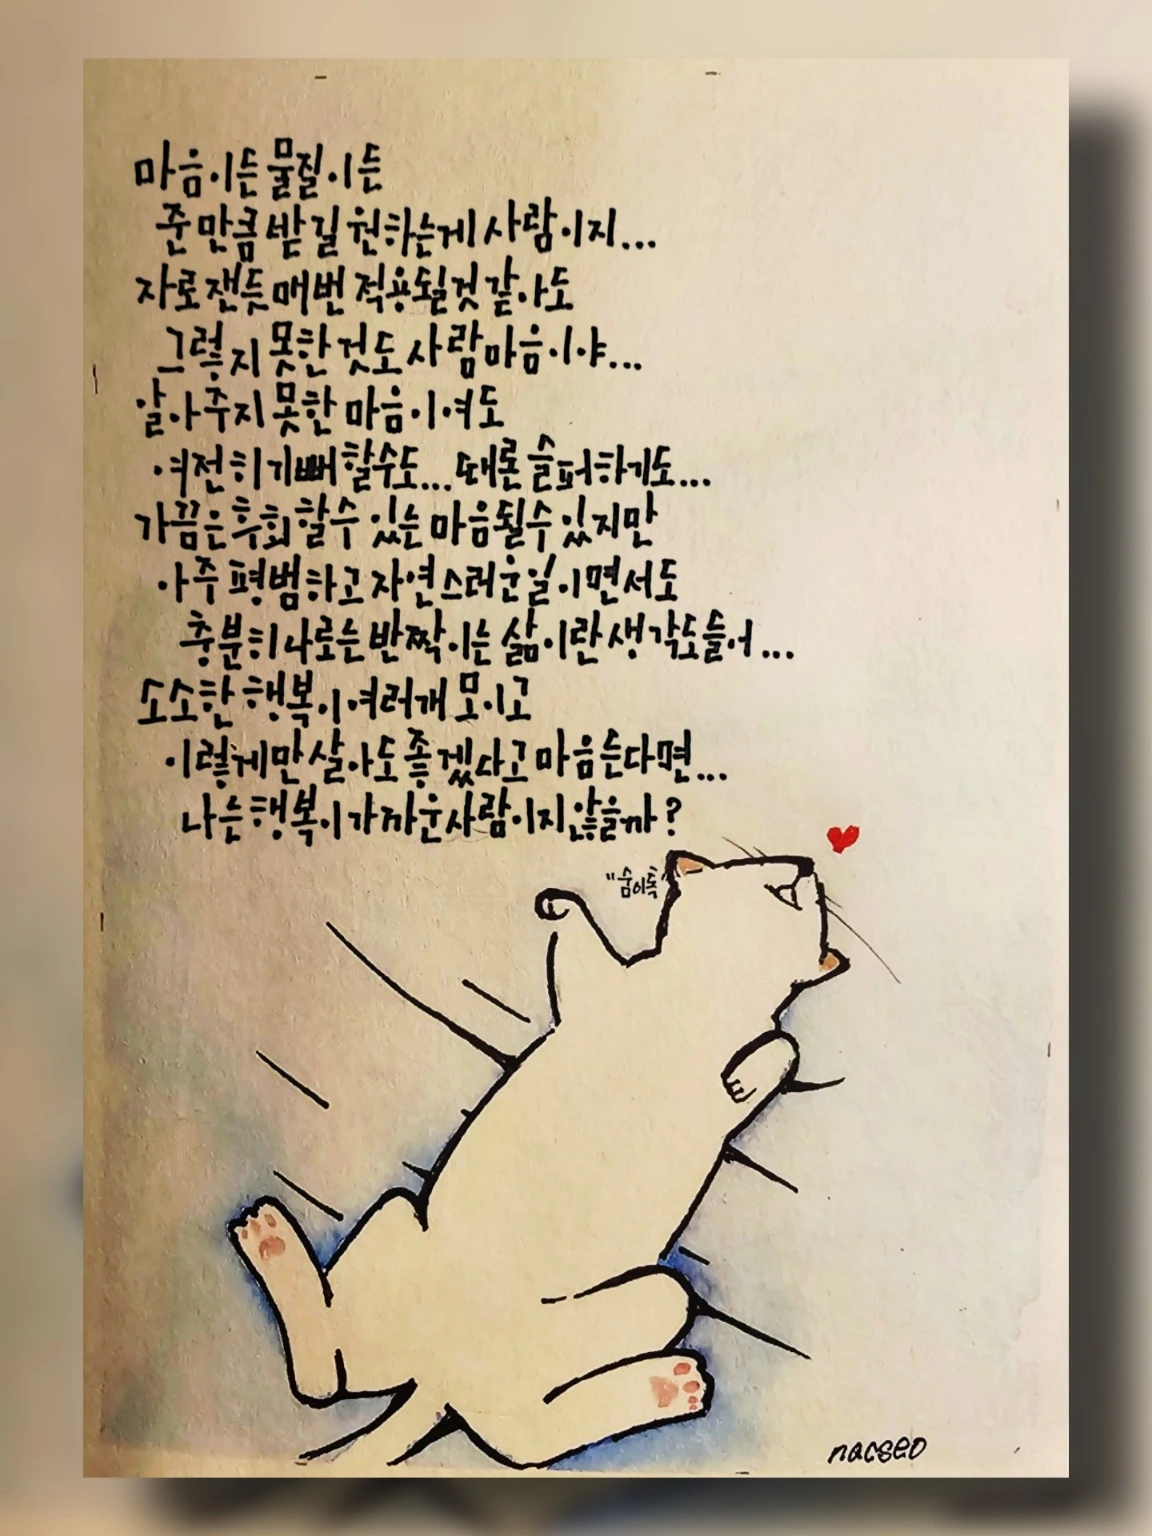 마음이든 물질이든
준 만큼 받길 원하는게 사람이지...
자로 잰듯 매번 적용될것 같아도
그렇지 못한 것도 사람마음이야...
알아주지 못한 마음이여도
여전히 기뻐 할수도... 때론 슬퍼하기도...
가끔은 후회 할수 있는 마음될수 있지만
아주 평범하고 자연스러운일이면서도
충분히 나로는 반짝이는 삶이란 생각도들어...
소소한 행복이 여러개 모이고
이렇게만 살아도 좋겠다고 마음든다면...
나는 행복이 가까운사람이지않을까?
"숨이톡"
nacseo